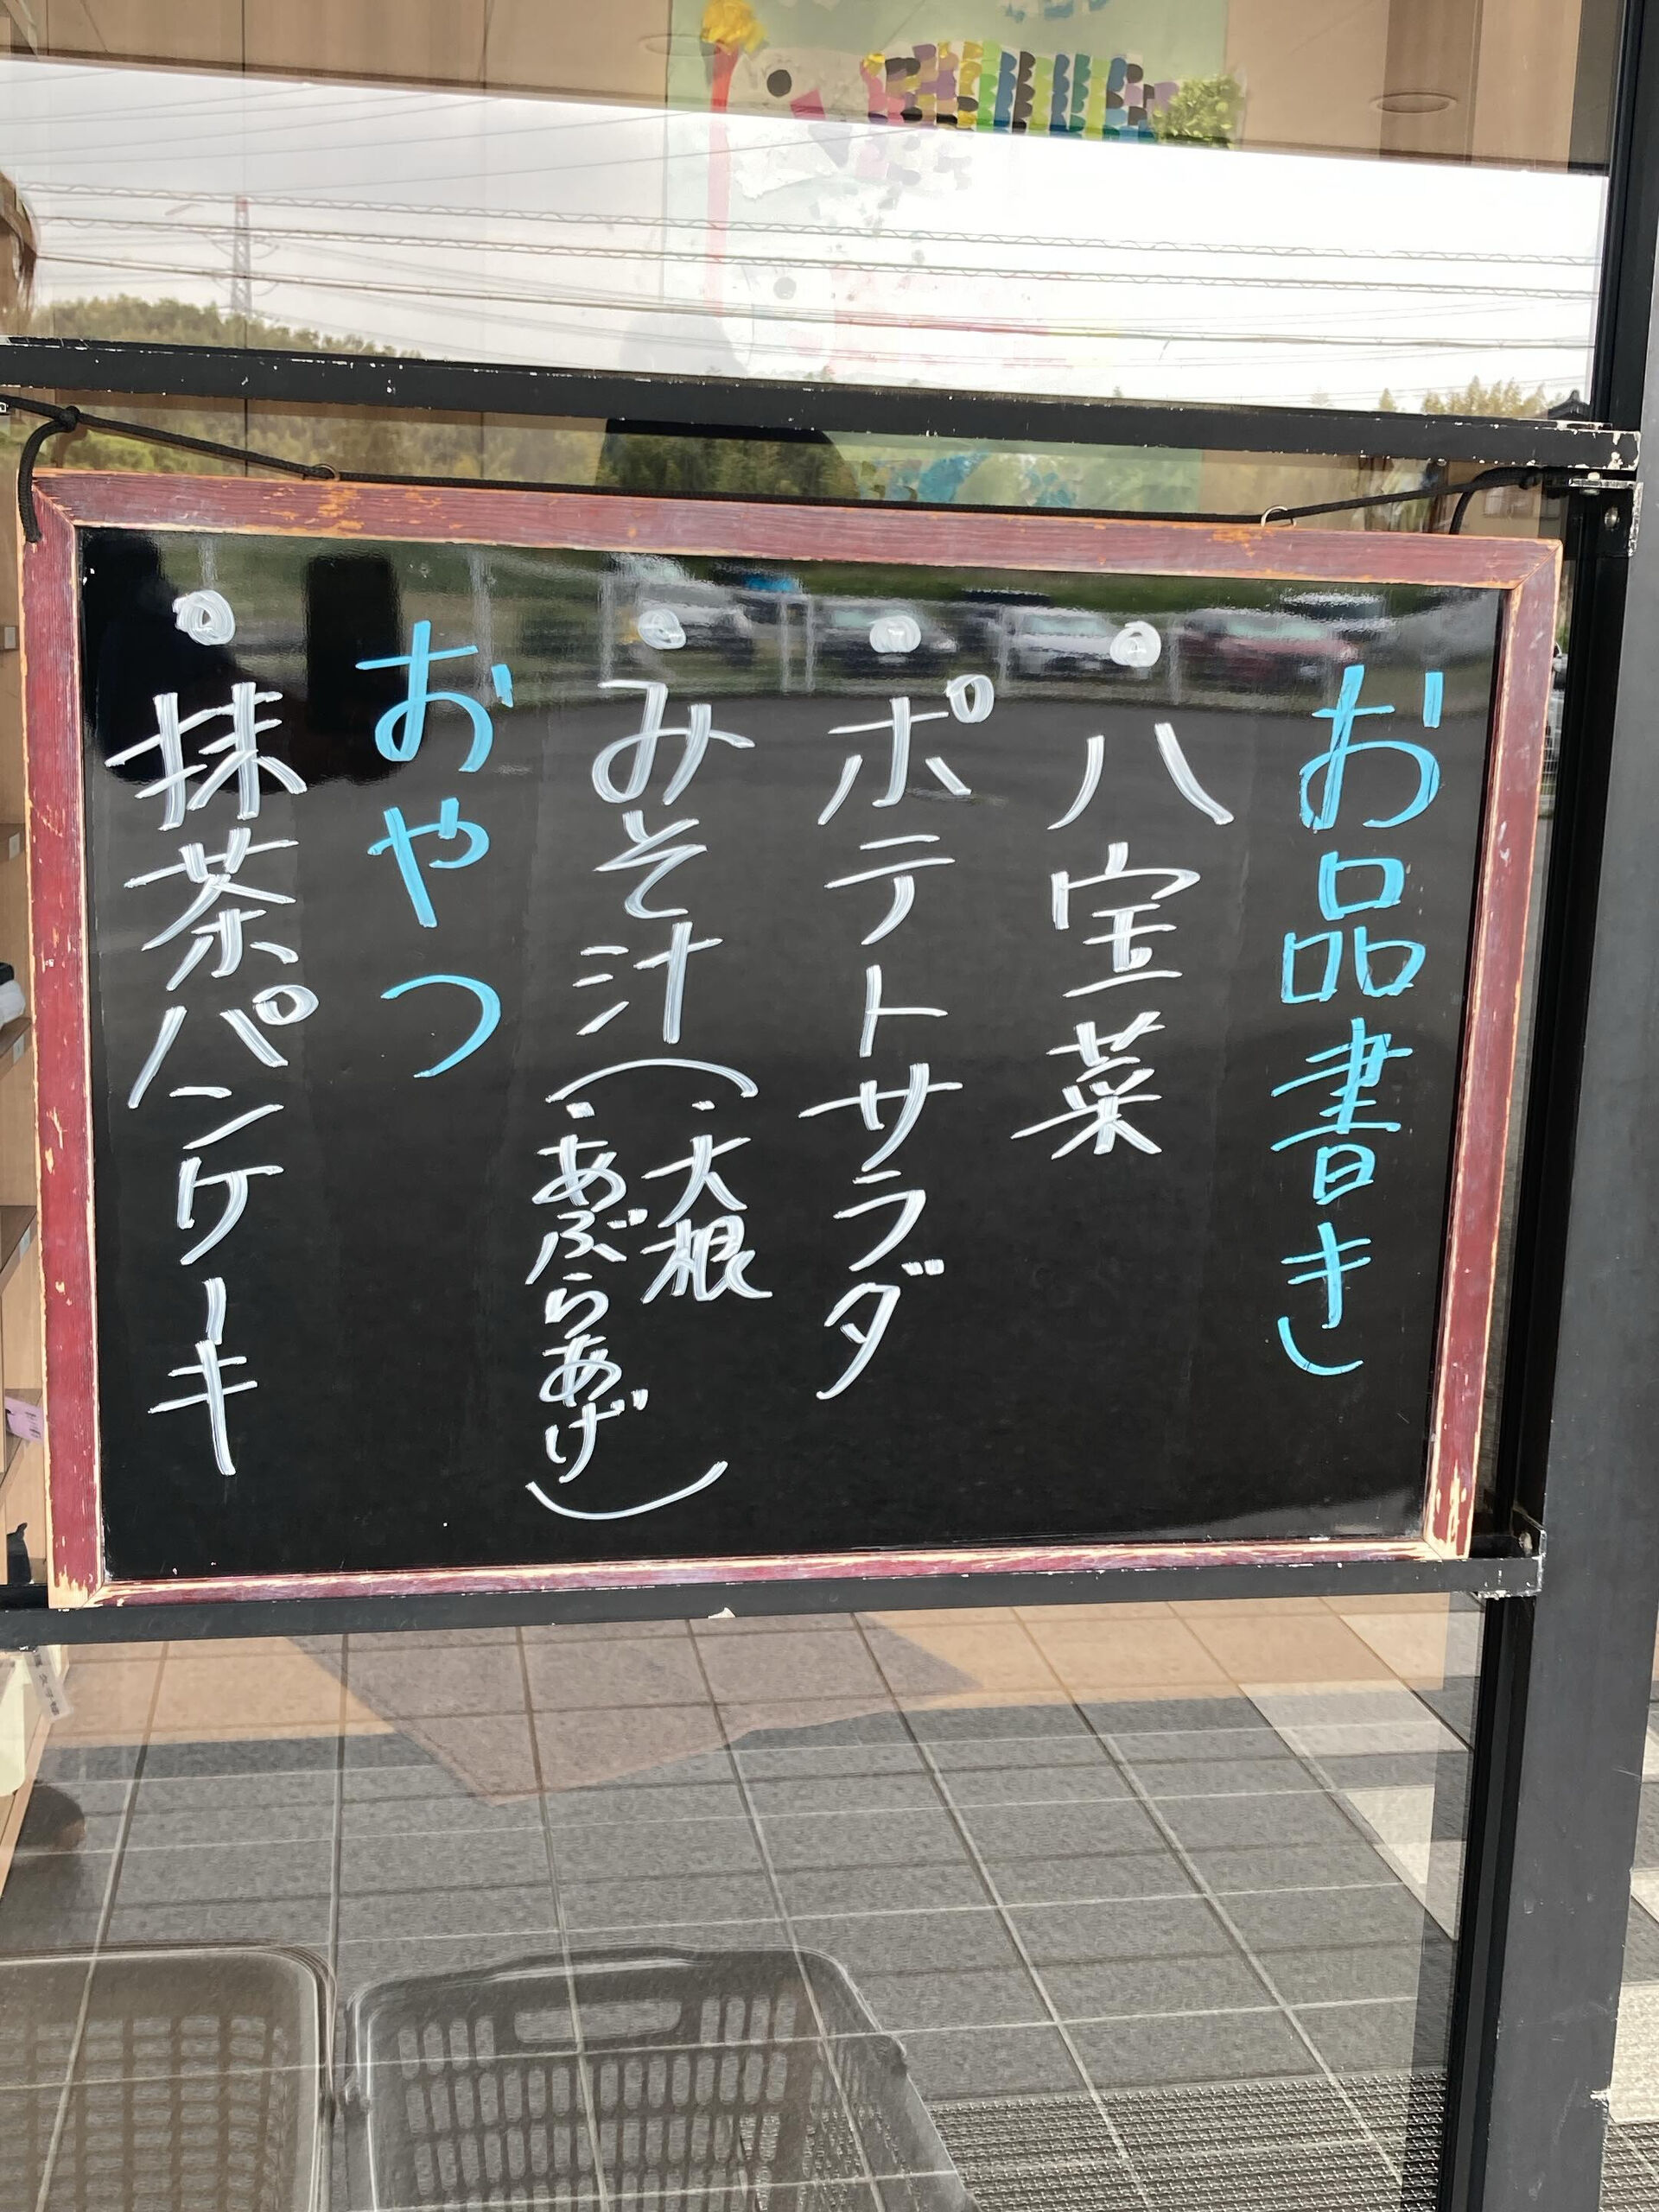 お品書き
・八宝菜
・ポテトサラダ
・みそ汁(・大根
・あぶらあげ)
おやつ
・抹茶パンケーキ